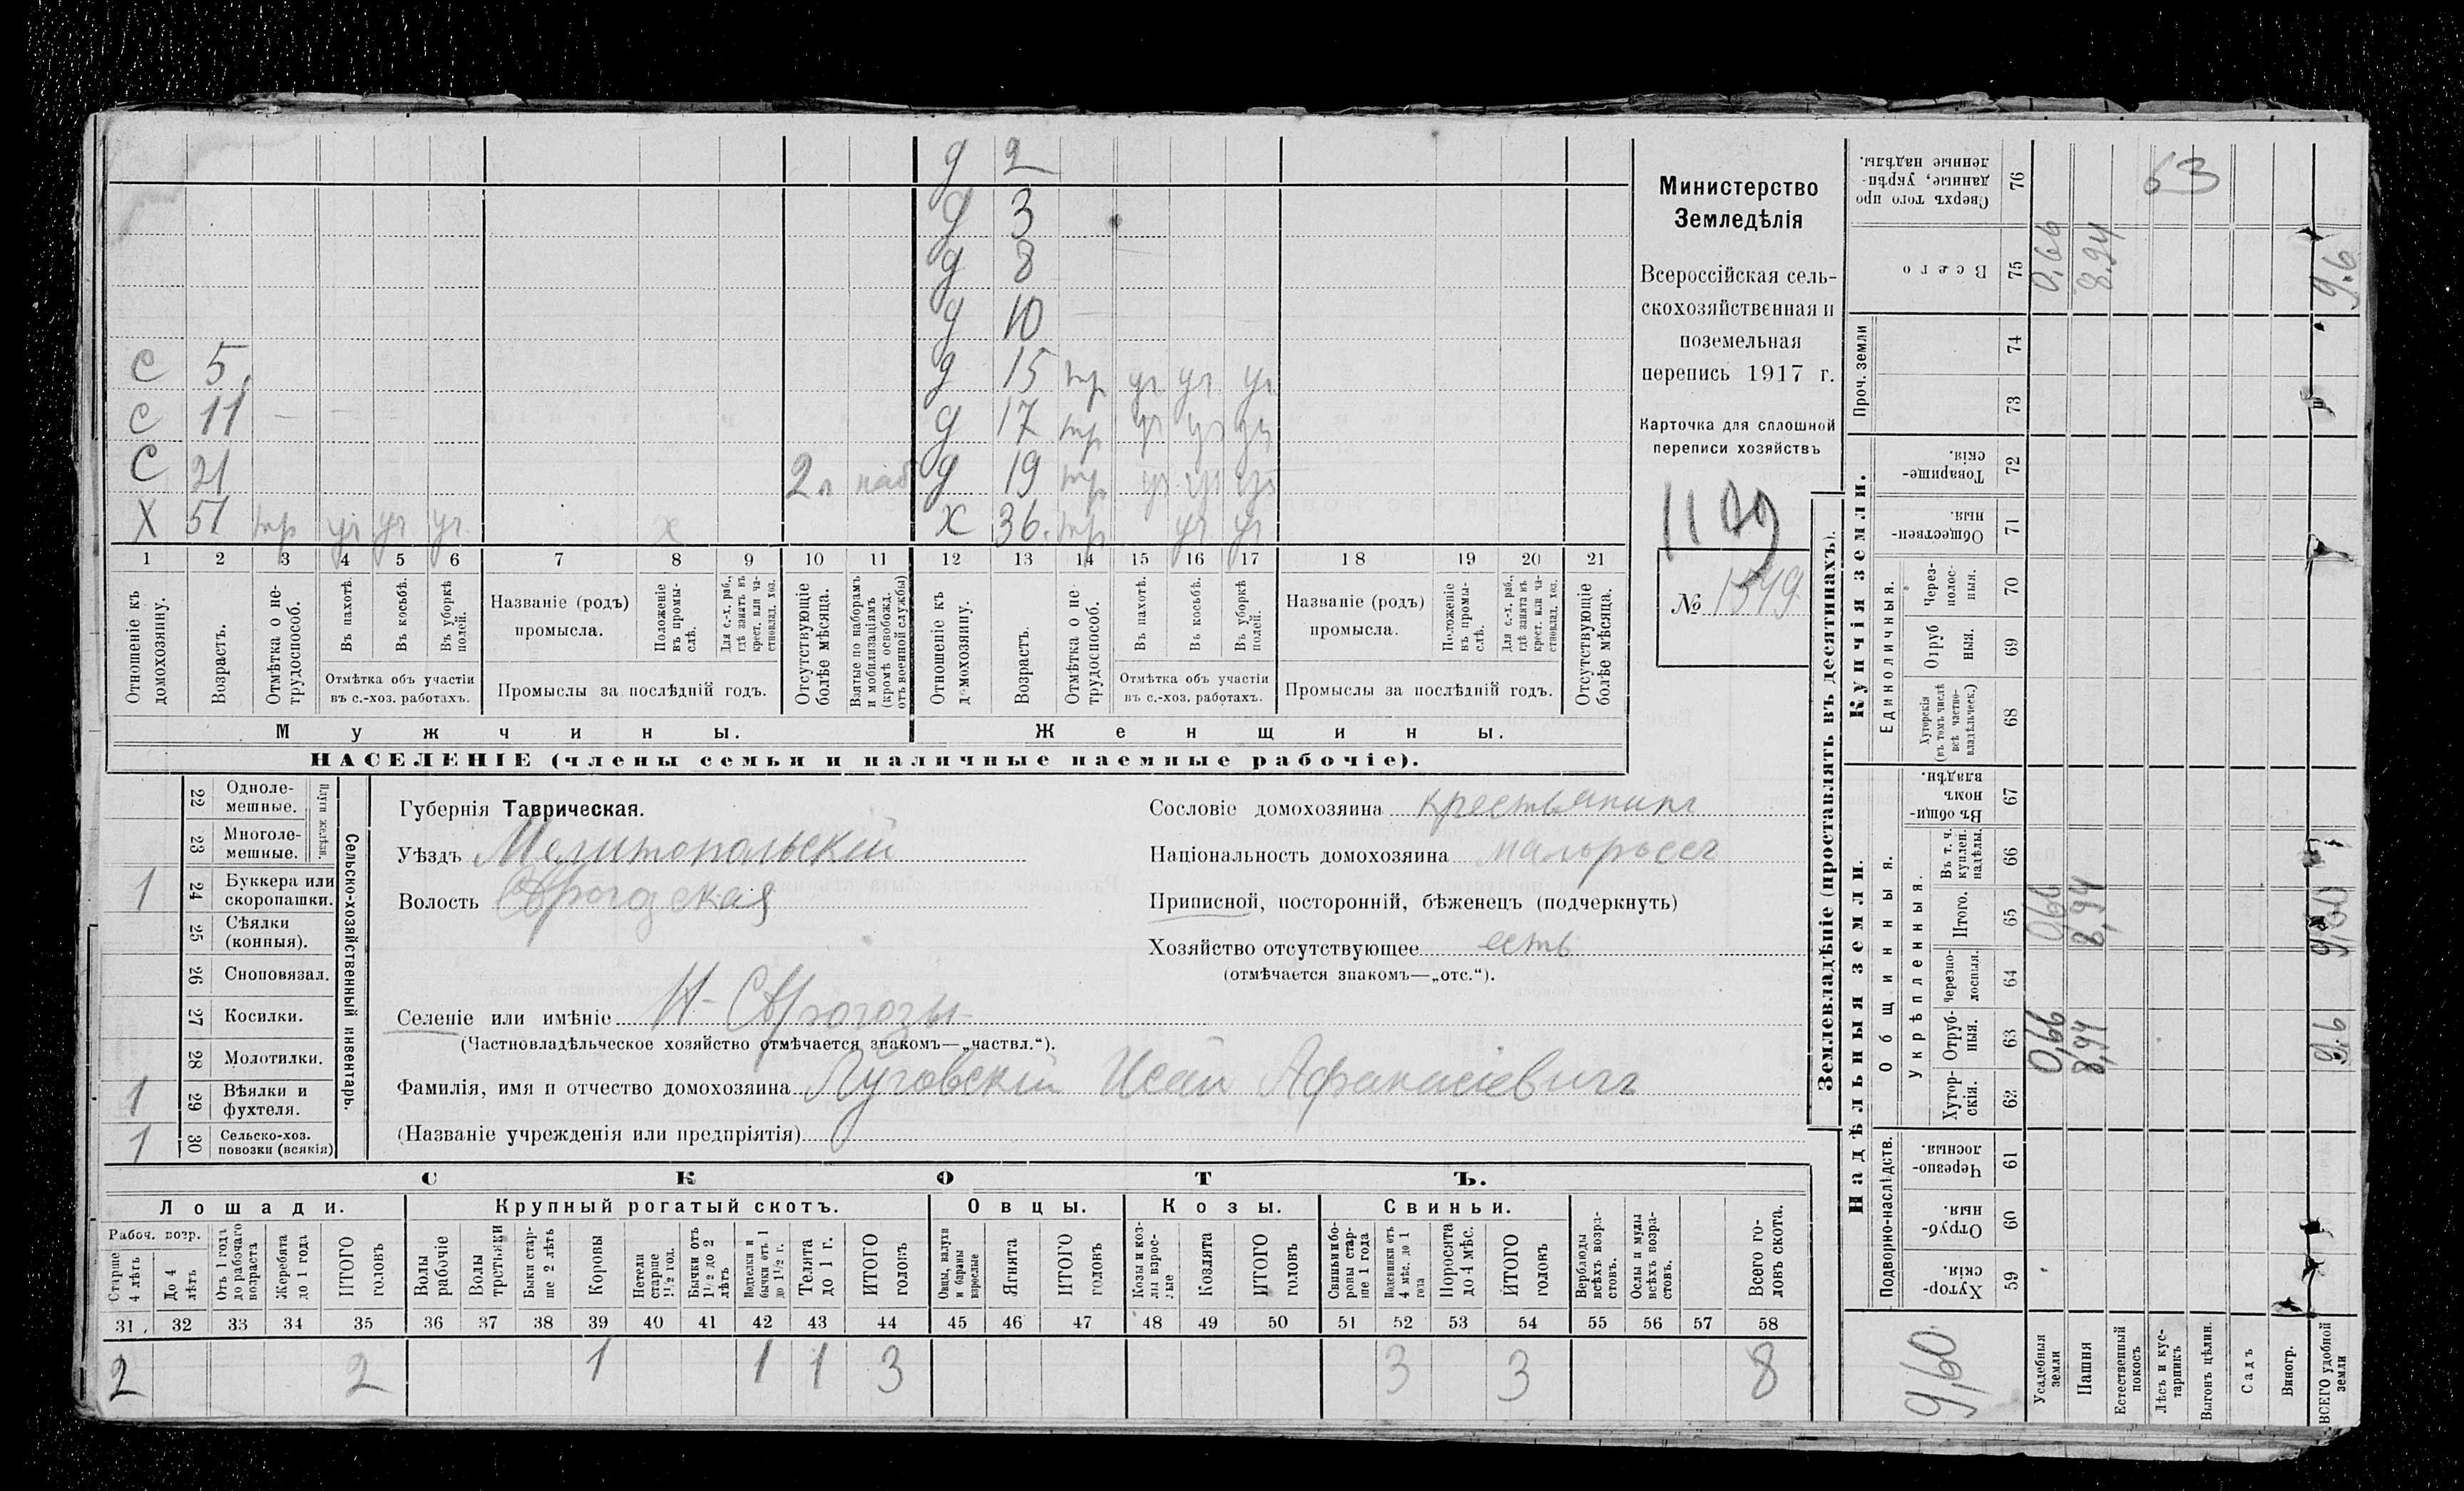 д 2
д 3
д 8
д 10
с 5. д 15 тр уч уч уч
с 11 — — д 17 тр уч уч уч
С 21 2 л наб д 19 тр уч уч уч
Х 51 тр уч уч уч х х 36. тр уч уч
1 2 3 4 5 6 7 8 9 10 11 12 13 14 15 16 17 18 19 20 21
Отношеніе къ домохозяину.
Возрастъ.
Отмѣтка о нетрудоспособ.
Въ пахотѣ.
Въ косьбѣ.
Въ уборкѣ полей.
Отмѣтка объ участіи
въ с.-хоз. работахъ.
Названіе (родъ)
промысла.
Положеніе въ промыслѣ.
Для с.-х. раб., гдѣ занятъ въ крест. или частновлад. хоз.
Промыслы за послѣдній годъ.
Отсутствующіе болѣе мѣсяца.
Взятые по наборамъ и мобилизаціямъ (кромѣ освобожд. отъ военной службы)
Отношеніе къ домохозяину.
Возрастъ.
Отмѣтка о нетрудоспособ.
Въ пахотѣ.
Въ косьбѣ.
Въ уборкѣ полей.
Отмѣтка объ участіи
въ с.-хоз. работахъ.
Названіе (родъ)
промысла.
Положеніе въ промыслѣ.
Для с.-х. раб., гдѣ занята въ крест. или частновлад. хоз.
Промыслы за послѣдній годъ.
Отсутствующіе болѣе мѣсяца.
Мужчины. Женщины.
НАСЕЛЕНІЕ (члены семьи и наличные наемные рабочіе).
Министерство
Земледѣлія
Всероссійская сель-
скохозяйственная и
поземельная
перепись 1917 г.
Карточка для сплошной
переписи хозяйствъ
№ 1549
22 Одноле-
мешные.
23 Многоле-
мешные.
Плуги желѣзн.
1 24 Буккера или
скоропашки.
25 Сѣялки
(конныя).
26 Сноповязал.
27 Косилки.
28 Молотилки.
1 29 Вѣялки и
фухтеля.
1 30 Сельско-хоз.
повозки (всякія)
Сельско-хозяйственный инвентарь.
Губернія Таврическая.
Уѣздъ Мелитопольскій
Волость
Сословіе домохозяина крестьянинъ
Національность домохозяина малороссъ
Приписной, посторонній, бѣженецъ (подчеркнуть)
Хозяйство отсутствующее есть
(отмѣчается знакомъ—„отс.“).
Селеніе или имѣніе Н-
(Частновладѣльческое хозяйство отмѣчается знакомъ—„частвл.“).
Фамилія, имя и отчество домохозяина Луговскій Исай Афанасіевичъ
(Названіе учрежденія или предпріятія)
СКОТЪ.
Лошади. Крупный рогатый скотъ. Овцы. Козы. Свиньи.
Рабоч. возр.
Старше 4 лѣтъ
До 4 лѣтъ
Отъ 1 года до рабочаго возраста
Жеребята до 1 года
ИТОГО головъ
Волы рабочіе
Волы третьяки
Быки старше 2 лѣтъ
Коровы
Нетели старше 1½ год.
Бычки отъ 1½ до 2 лѣтъ
Подтелки и бычки отъ 1 до 1½ г.
Телята до 1 г.
ИТОГО головъ
Овцы, валухи и бараны взрослые
Ягнята
ИТОГО головъ
Козы и козлы взрослые
Козлята
ИТОГО головъ
Свиньи и боровы старше 1 года
Подсвинки отъ 4 мѣс. до 1 года
Поросята до 4 мѣс.
ИТОГО головъ
Верблюды всѣхъ возрастовъ.
Ослы и мулы всѣхъ возрастовъ.
Всего головъ скота.
31 32 33 34 35 36 37 38 39 40 41 42 43 44 45 46 47 48 49 50 51 52 53 54 55 56 57 58
2 2 1 1 1 3 3 3 8
Землевладѣніе (проставлять въ десятинахъ).
Сверхъ того проданные, укрѣпленные надѣлы. 76 53
Всего 75 0,66 8.94 9.6
Проч. земли
74
73
Купчія земли.
Товарищескія. 72
Общественныя. 71
Единоличныя.
Черезполосныя. 70
Отрубныя. 69
Хуторскія (въ томъ числѣ всѣ частновладѣльческ.) 68
Надѣльныя земли.
Общинныя.
Въ общинномъ владѣн. 67
Укрѣпленныя.
Въ т. ч. куплен. надѣлы. 66
Итого. 65 0,66 8,94 9,60
Черезполосныя. 64
Отрубныя. 63 0,66 8,94 9.6
Хуторскія. 62
Подворно-наслѣдств.
Черезполосныя. 61
Отрубныя. 60
Хуторскія. 59
9,60
Усадебныя земли
Пашня
Естественный покосъ
Лѣсъ и кустарникъ
Выгонъ цѣлин.
Садъ
Виногр.
ВСЕГО удобной земли